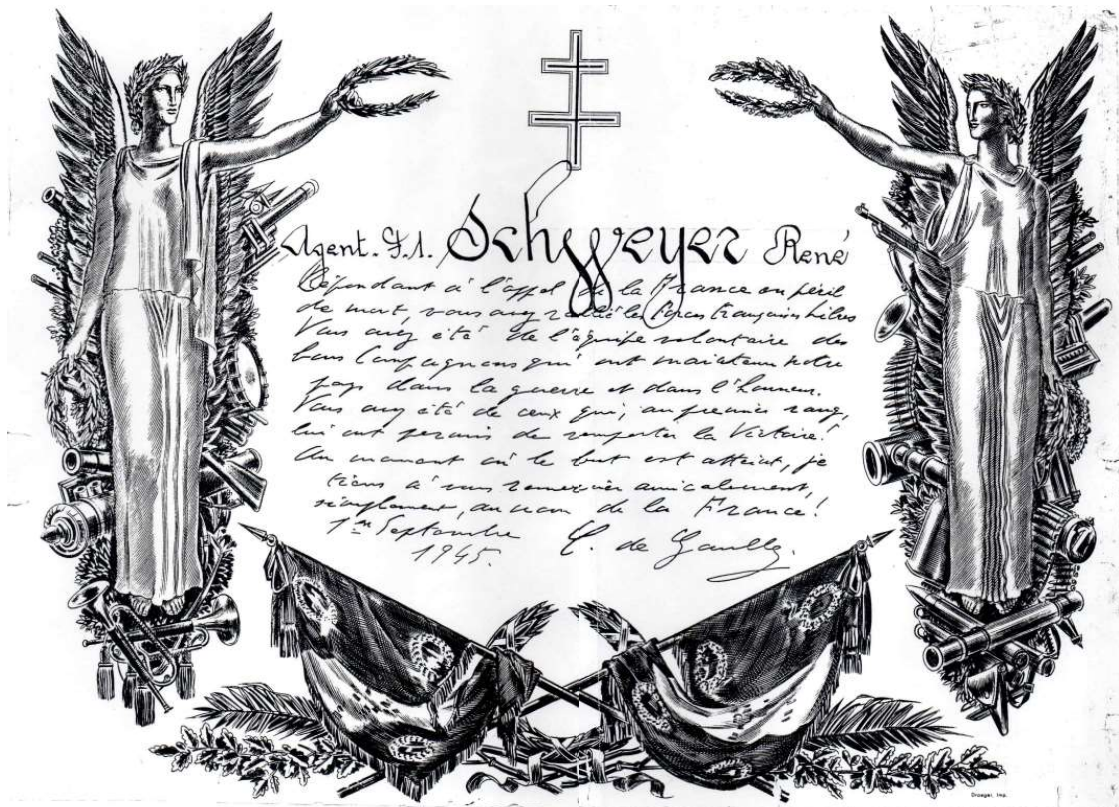 Agent. P.1. Schweyer René
Répondant à l'appel de la France en péril
de mort, vous avez rallié les Forces Françaises Libres
Vous avez été de l'équipe volontaire des
bons compagnons qui ont maintenu notre
pays dans la guerre et dans l'honneur.
Vous avez été de ceux qui, au premier rang,
lui ont permis de remporter la Victoire!
Au moment où le but est atteint, je
tiens à vous remercier amicalement,
simplement, au nom de la France!
1er Septembre
1945. C. de Gaulle.
Draeger, Imp.